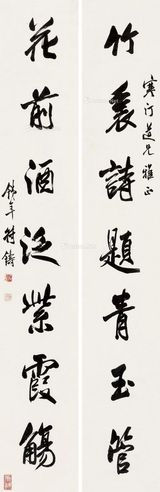 寒汀道兄雅正
竹裏詩題青玉管
花前酒泛紫霞觴
錦年符鑄